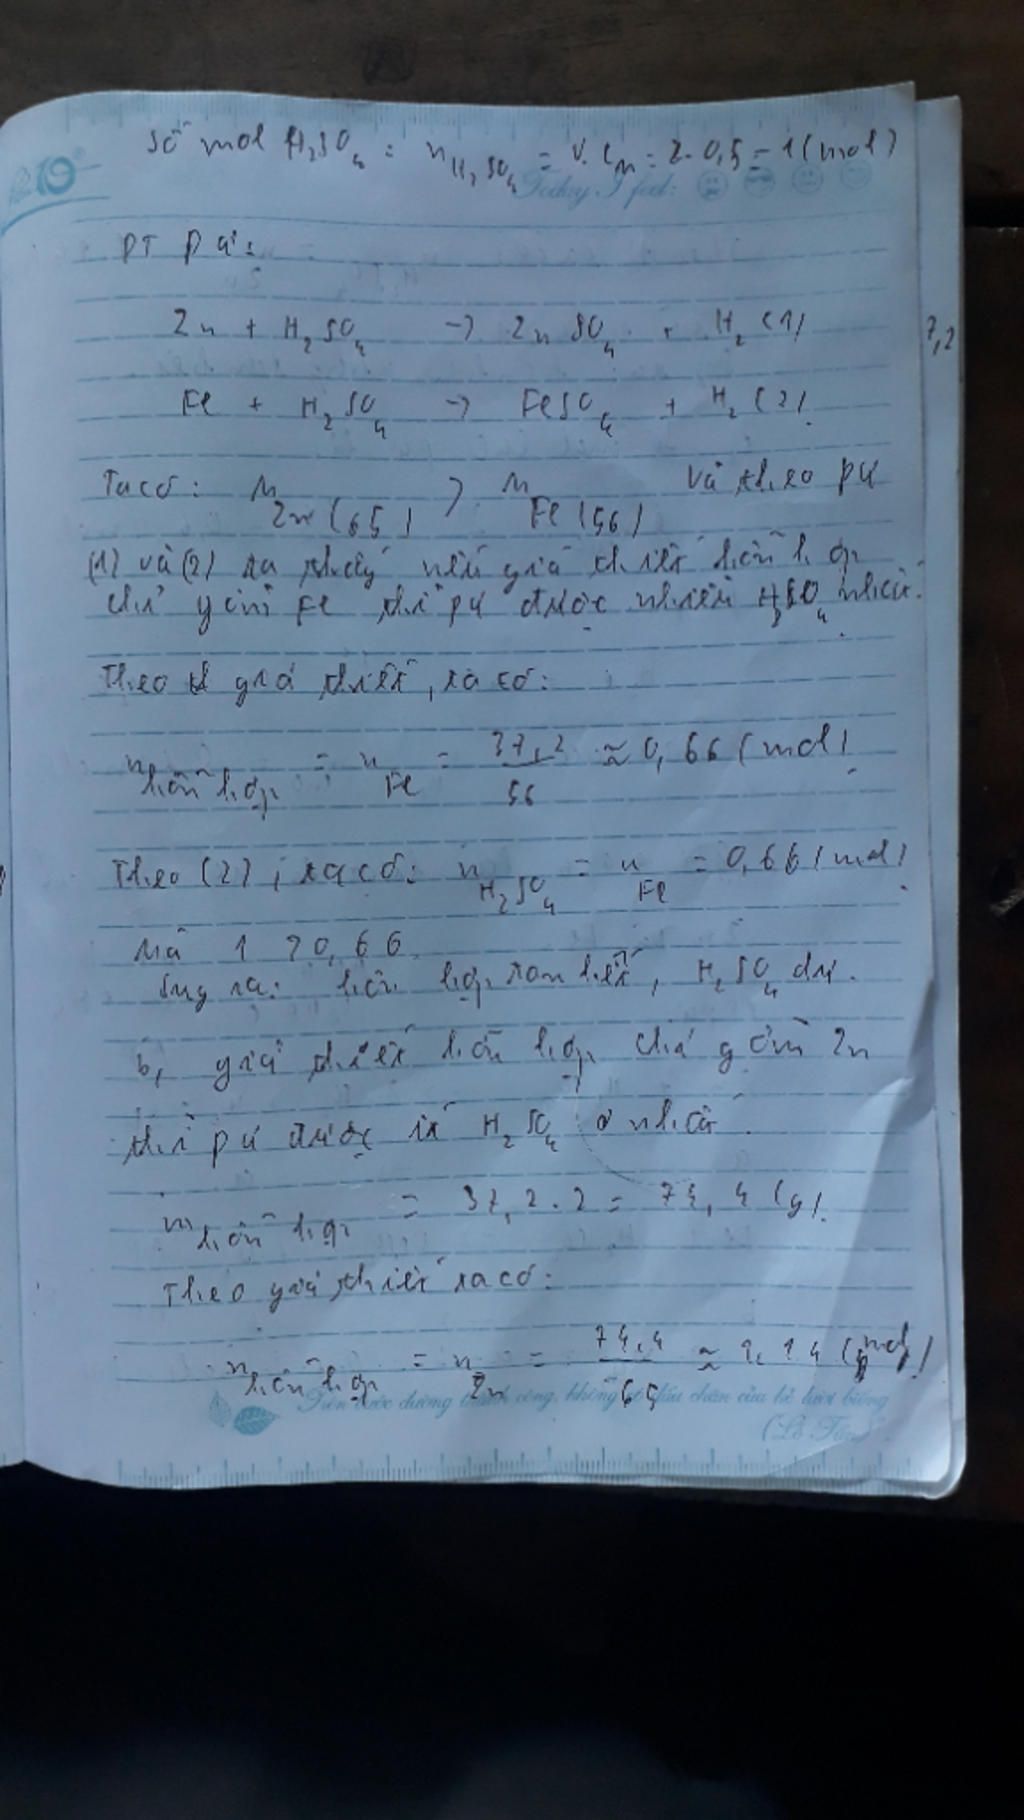 Số mol H₂SO₄ : n H₂SO₄ = V. CM = 2. 0,5 = 1 (mol)
Today I feel:
PT pứ:
Zn + H₂SO₄ → ZnSO₄ + H₂ (1)
7,2
Fe + H₂SO₄ → FeSO₄ + H₂ (2)
Ta có: M Zn (65) > M Fe (56) và theo pứ
(1) và (2) ta thấy nếu giả thiết hỗn hợp
chỉ gồm Fe thì pứ được nhiều H₂SO₄ nhất.
Theo giả thiết, ta có:
n hỗn hợp = n Fe = 37,2/56 ≈ 0,66 (mol)
Theo (2), ta có: n H₂SO₄ = n Fe = 0,66 (mol)
Mà 1 > 0,66
Suy ra: hỗn hợp tan hết, H₂SO₄ dư.
b, giả thiết hỗn hợp chỉ gồm Zn
thì pứ được ít H₂SO₄ nhất.
m hỗn hợp = 37,2 . 2 = 74,4 (g).
Theo giả thiết ta có:
n hỗn hợp = n Zn = 74,4/65 ≈ 1,14 (mol)
Trên bước đường thành công, không có dấu chân của kẻ lười biếng